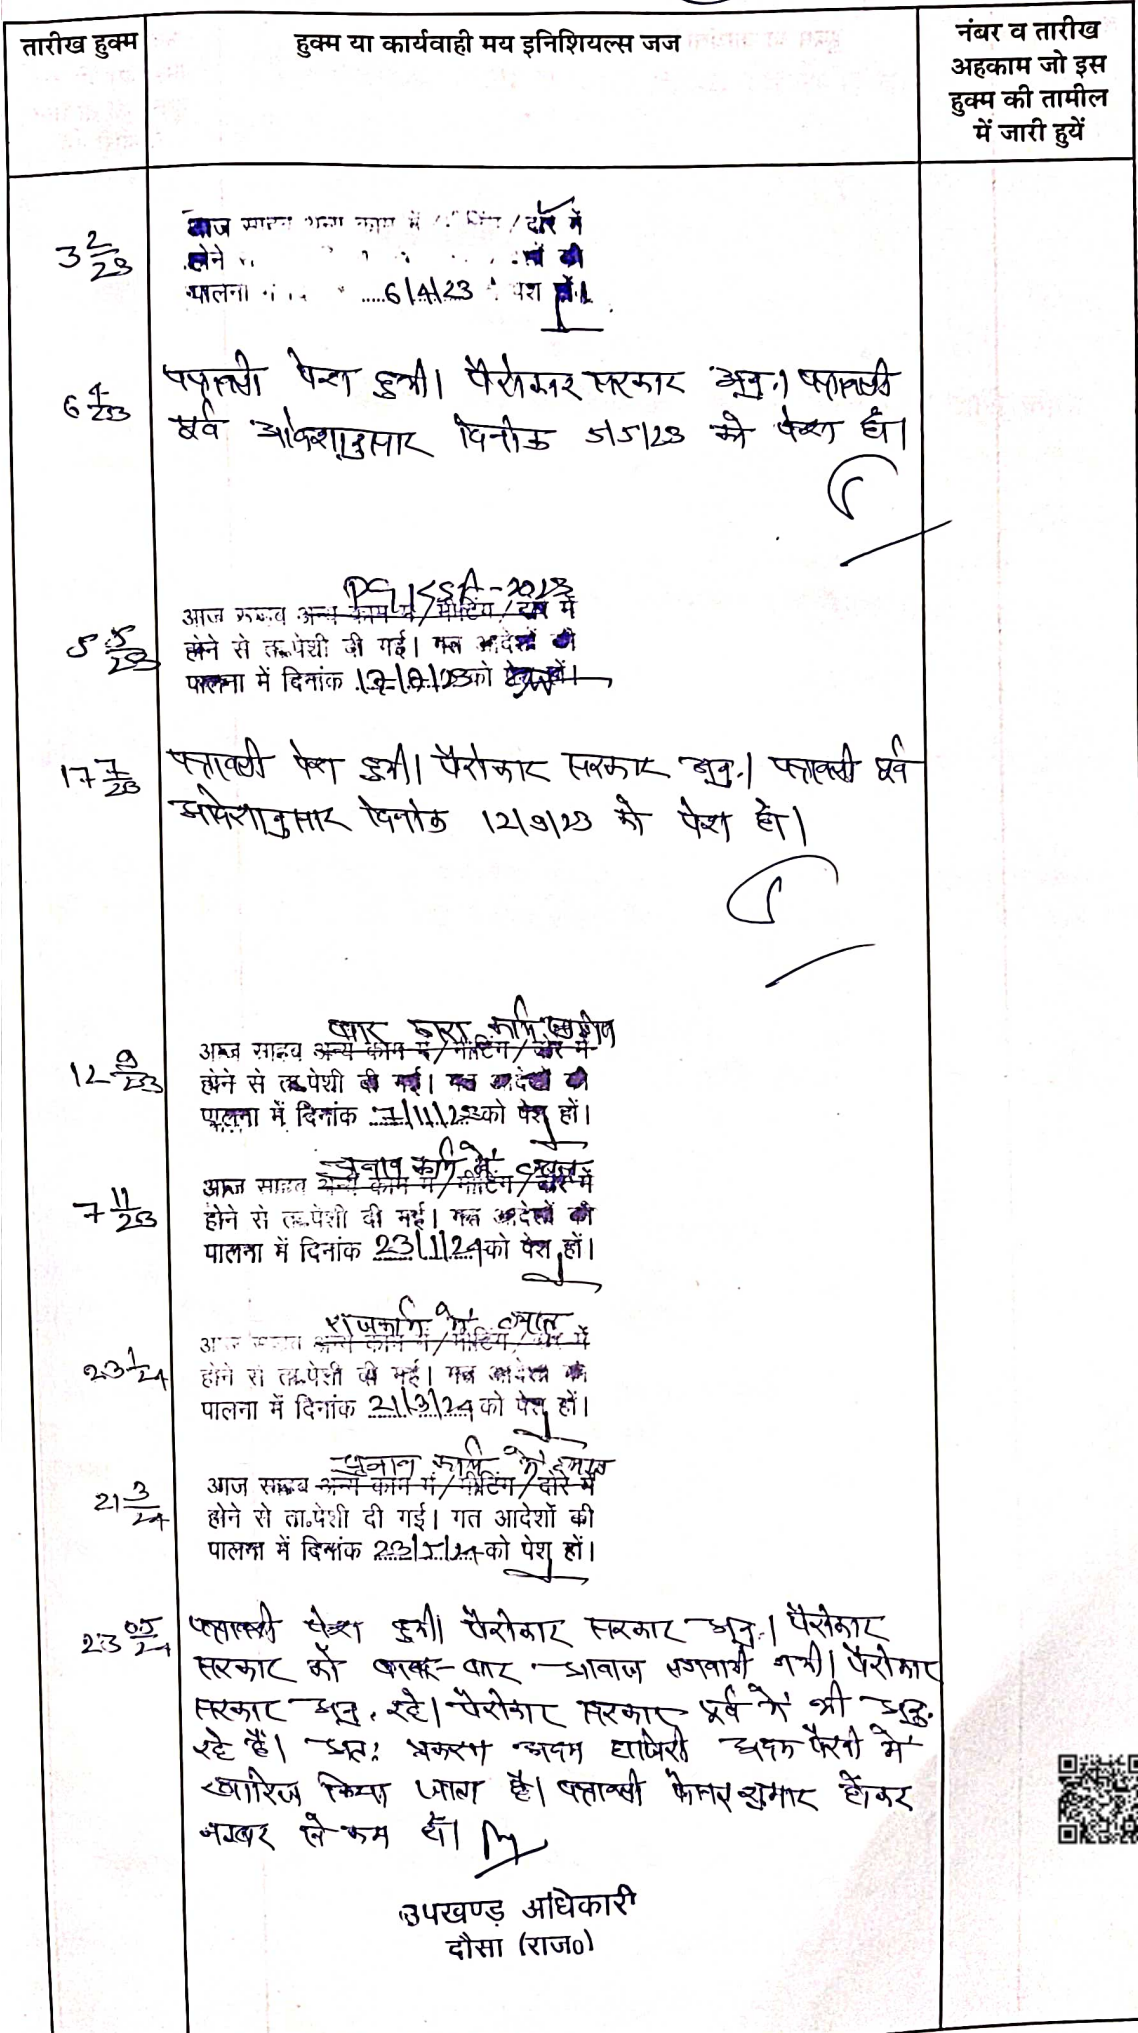 तारीख हुक्म
हुक्म या कार्यवाही मय इनिशियल्स जज
नंबर व तारीख
अहकाम जो इस
हुक्म की तामील
में जारी हुयें
3 2/23
आज साहब अन्य काम में / दौरे में
होने की
पालना 6/4/23 पेश हों।
6 4/23
पत्रावली पेश हुयी। पैरोकार सरकार अनु.। पत्रावली
पूर्व आदेशानुसार दिनांक 5/5/23 को पेश हो।
5 5/23
आज साहब अन्य काम में/मीटिंग/दौरे में
होने से ता.पेशी दी गई। गत आदेशों की
पालना में दिनांक को पेश हों।
17 7/23
पत्रावली पेश हुयी। पैरोकार सरकार अनु.। पत्रावली पूर्व
आदेशानुसार दिनांक 12/9/23 को पेश हो।
12 9/23
बार द्वारा कार्य
आज साहब अन्य काम में/मीटिंग/दौरे में
होने से ता.पेशी दी गई। गत आदेशों की
पालना में दिनांक 7/11/23 को पेश हों।
7 11/23
चुनाव कार्य में व्यस्त
आज साहब अन्य काम में/मीटिंग/दौरे में
होने से ता.पेशी दी गई। गत आदेशों की
पालना में दिनांक 23/1/24 को पेश हों।
23 1/24
राजकार्य में व्यस्त
आज साहब अन्य काम में/मीटिंग/दौरे में
होने से ता.पेशी दी गई। गत आदेशों की
पालना में दिनांक 21/3/24 को पेश हों।
21 3/24
चुनाव कार्य में व्यस्त
आज साहब अन्य काम में/मीटिंग/दौरे में
होने से ता.पेशी दी गई। गत आदेशों की
पालना में दिनांक 23/5/24 को पेश हों।
23 05/24
पत्रावली पेश हुयी। पैरोकार सरकार अनु.। पैरोकार
सरकार को बार-बार आवाज लगवायी गयी। पैरोकार
सरकार अनु. रहे। पैरोकार सरकार पूर्व में भी अनु.
रहे हैं। अतः प्रकरण अदम हाजिरी अदम पैरवी में
खारिज किया जाता है। पत्रावली फैसल शुमार होकर
नम्बर से कम हो।
उपखण्ड अधिकारी
दौसा (राज०)